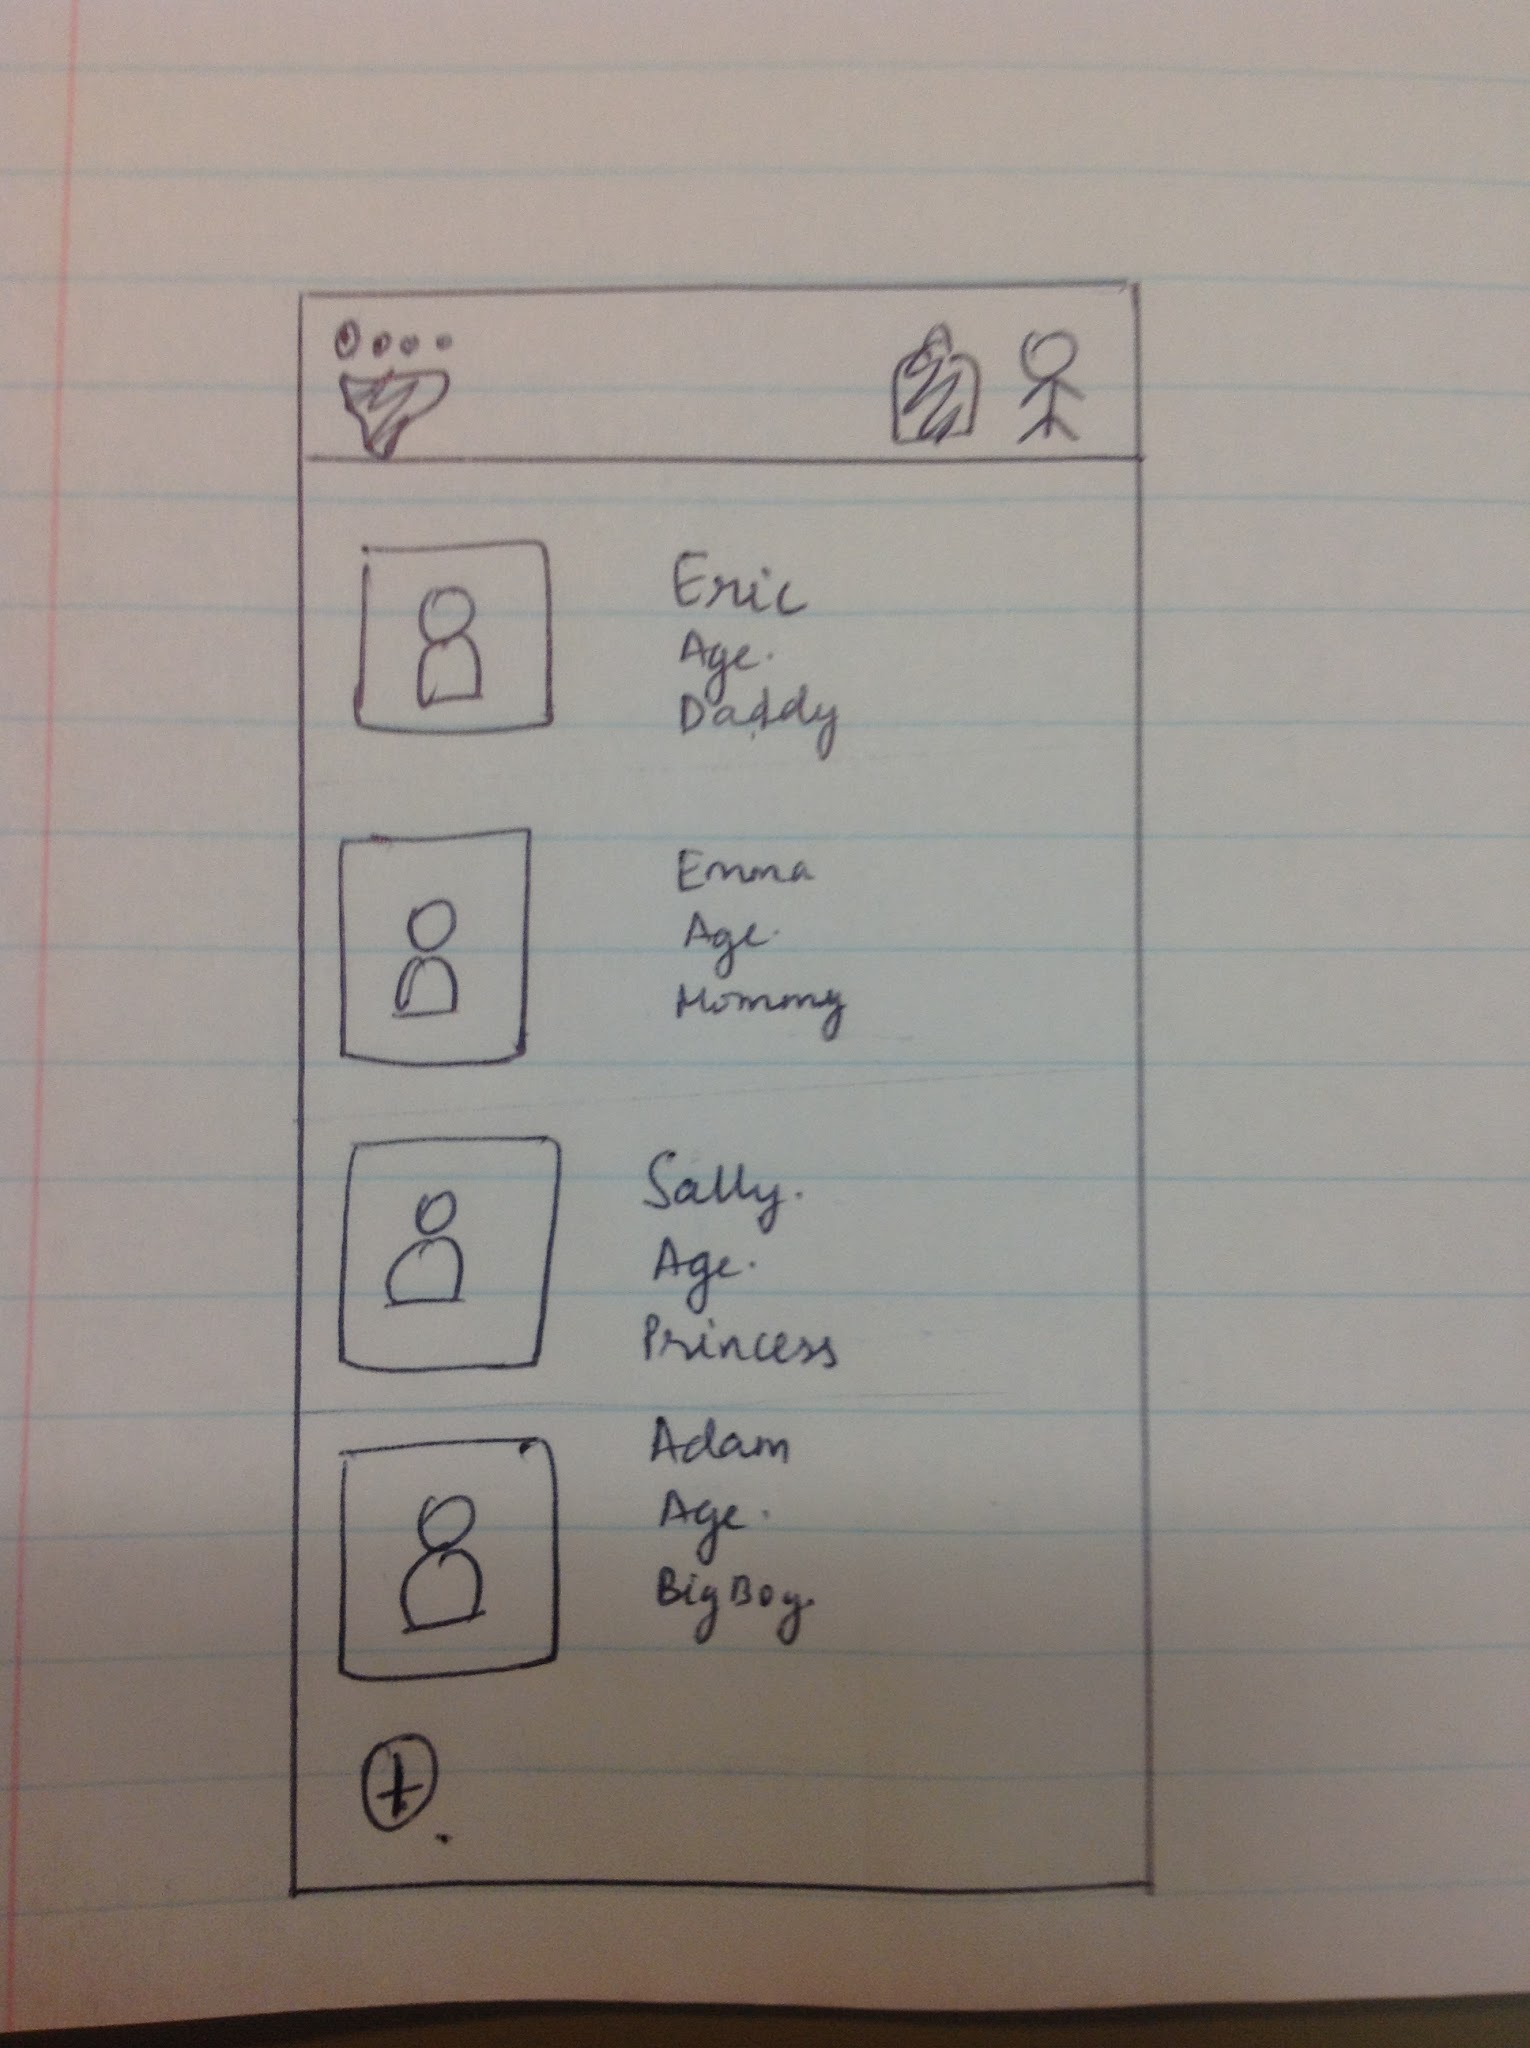 Eric
Age.
Daddy
Emma
Age.
Mommy
Sally.
Age.
Princess
Adam
Age.
BigBoy.